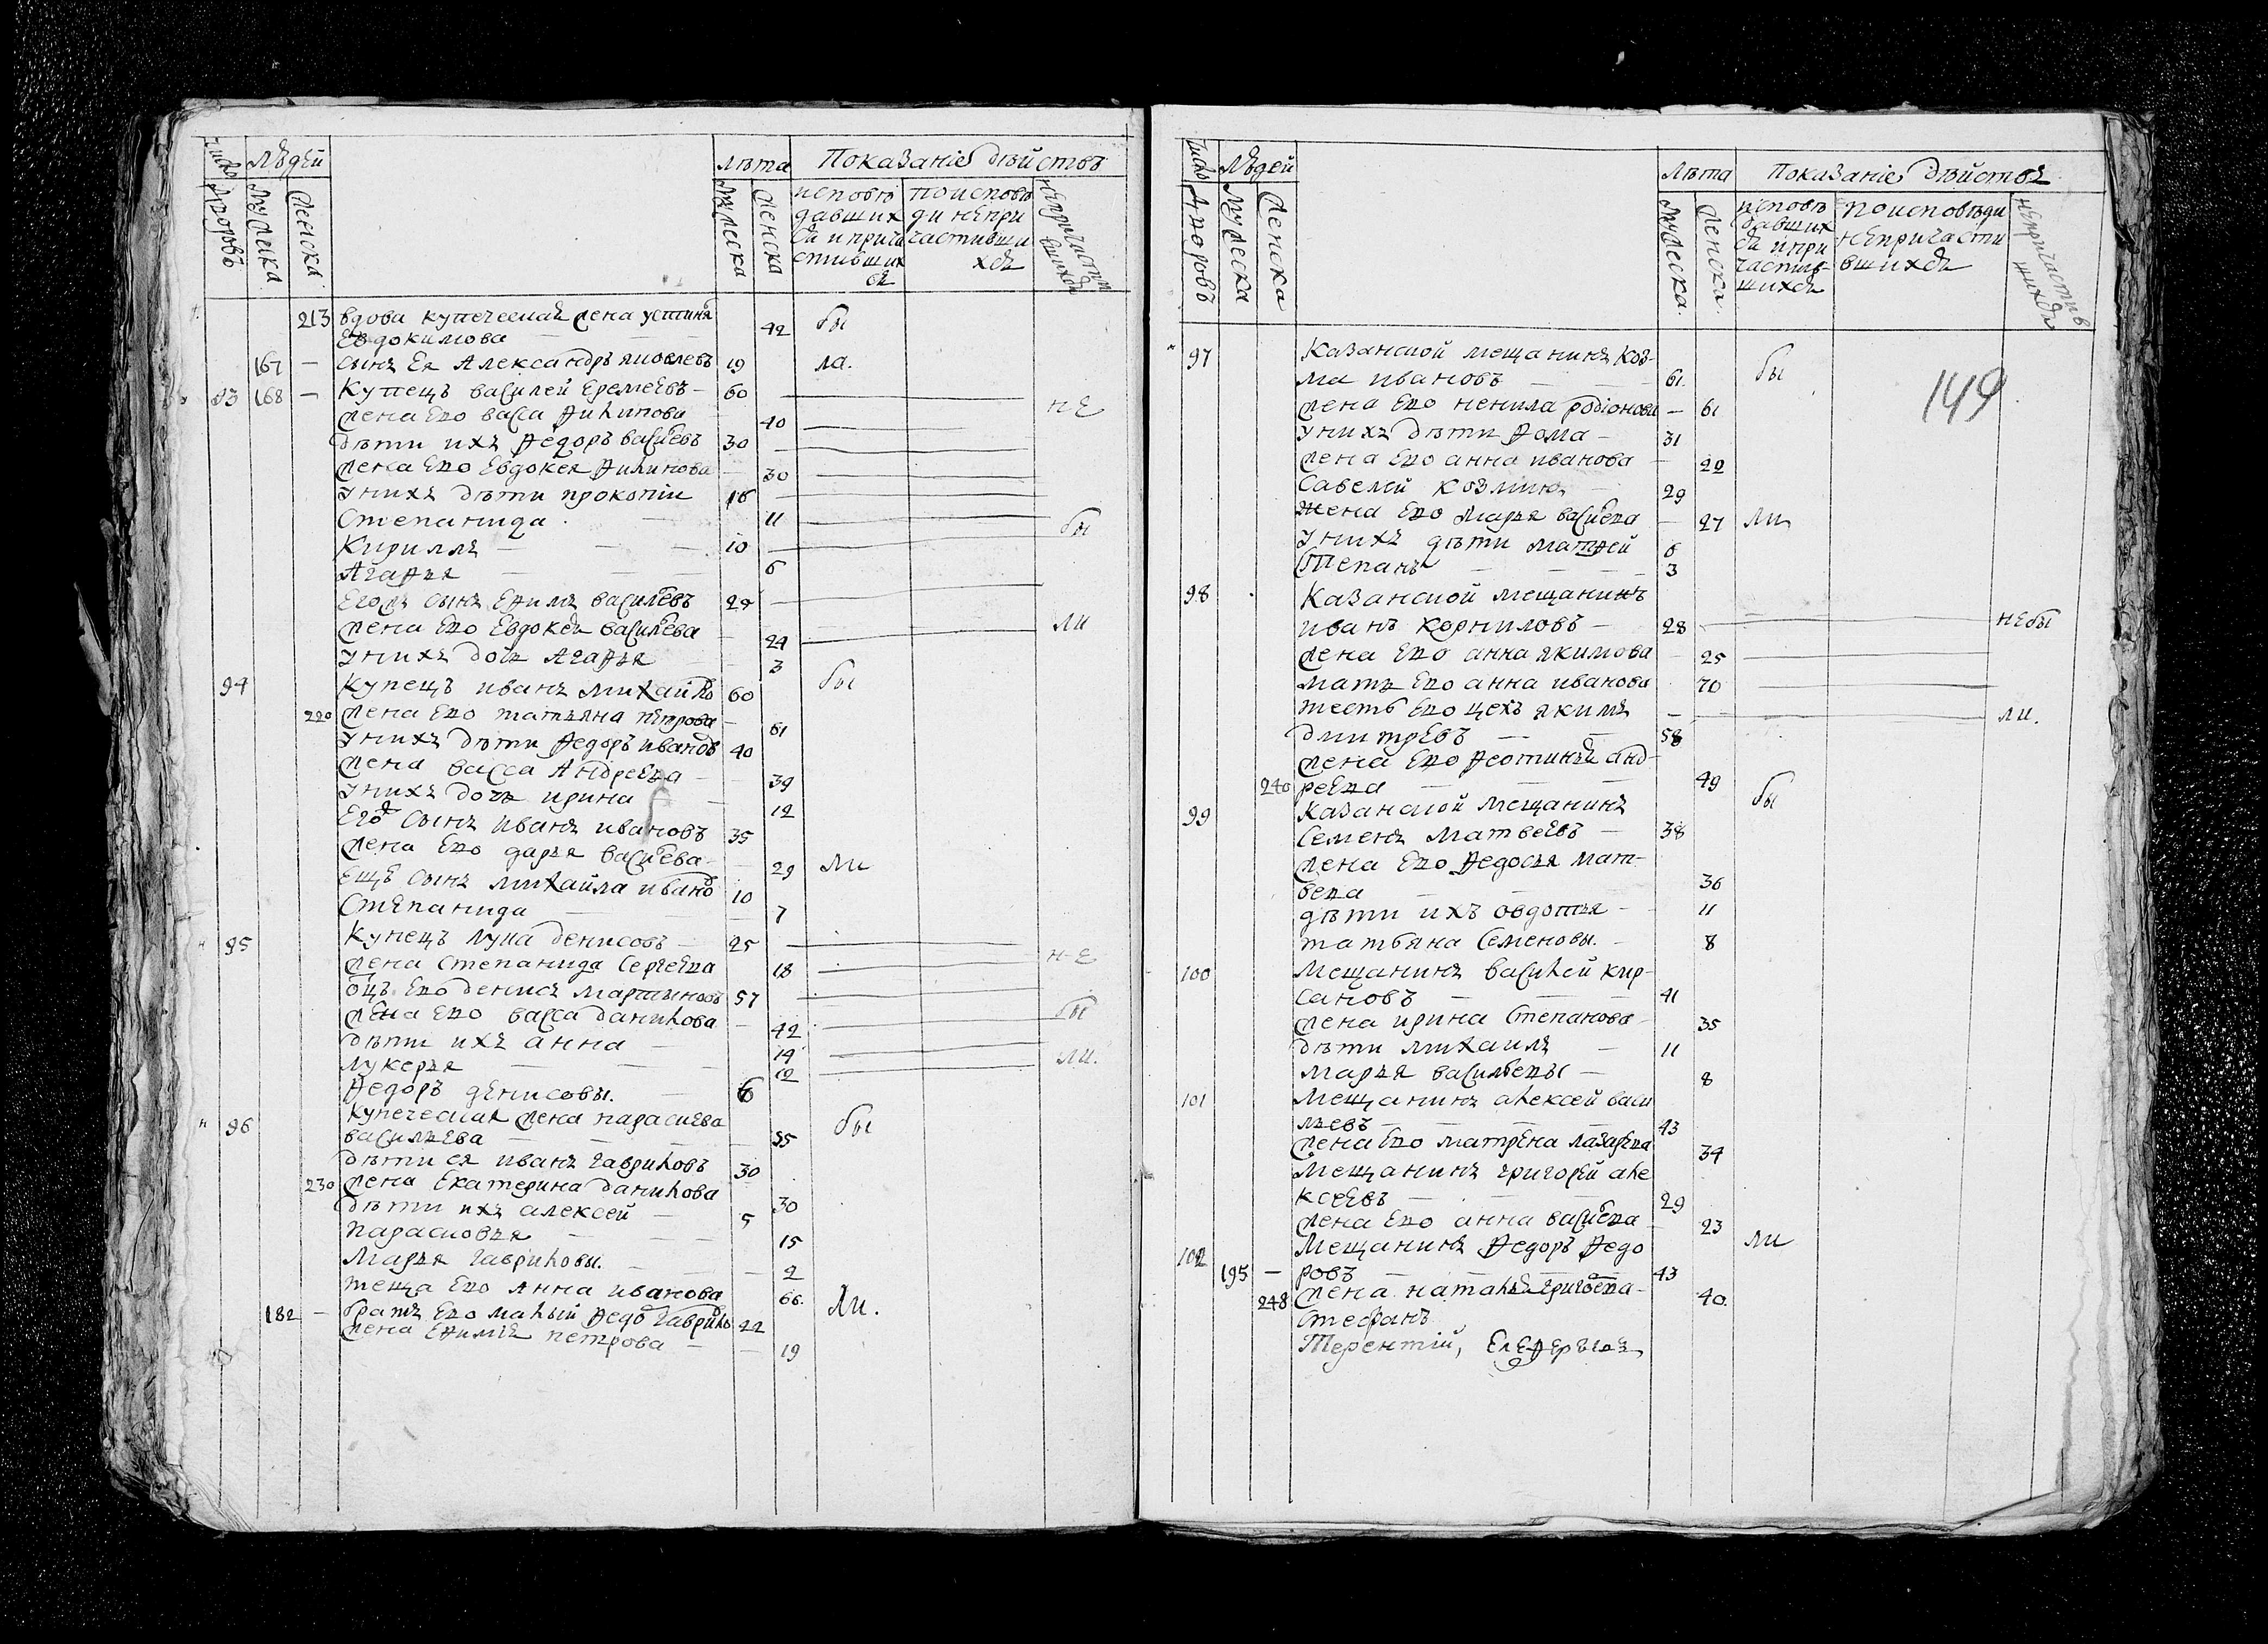 число дворовъ людей лѣта Показаніе дѣйствъ
мужеска женска мужеска женска исповѣдавшихся и причастившихся по исповѣди непричастившихся непричастившихся
213 вдова купеческая жена устинья
Евдокимова — 42 бы
167 — сынъ Ея Александръ яковлевъ 19 ла.
93 168 — Купецъ василей Еремеевъ — 60
жена Его васса Филипова 40 не
дѣти ихъ Федоръ васильевъ 30
жена Его Евдокея Филипова 30
у нихъ дѣти прокопии 16
Степанида 11
Кириллъ — 10 бы
Агафья — 6
Егожъ сынъ Ефимъ васильевъ 24
жена Его Евдокея васильева 24 ли
у нихъ дочь Агафья 3
94 купецъ иванъ михайло 60 бы
220 жена Его татьяна петрова — 61
у нихъ дѣти Федоръ ивановъ 40
жена васса Андреева — 39
у нихъ дочь ирина — 12
Егожъ сынъ иванъ ивановъ 35
жена Его дарья васильева — 29 ли
Ещѣ сынъ михайла ивано 10
Степанида — 7
95 Купецъ лука денисовъ — 25
жена степанида Сергеева 18 не
оцъ Его денисъ мартыновъ 57
жена Его васса данилова — 42 бы
дѣти ихъ анна — 14
лукерья — 12 ли.
Федоръ денисовы. 6
96 купеческая жена парасиева
васильева — 55 бы
дѣти ея иванъ гавриловъ 30
230 жена Екатерина данилова 30
дѣти ихъ алексей — 5
парасковья — 15
Марья гавриловы. — 2
теща Его Анна иванова 66.
182 — братъ Его малый Федоръ гаврило 22 ли.
жена Ефимья петрова — 19
число дворовъ людей лѣта Показаніе дѣйства
мужеска женска мужеска. женска. исповѣдавшихся и причастившихся по исповѣди непричастившихся непричастившихся
149
97 Казанской мещанинъ Коз-
ма ивановъ — 61. бы
жена Его ненила родіонова — 61
у нихъ дѣти Фома — 31
жена Его анна иванова — 22
Савелей козминъ 29
жена Его Марья васильева — 27 ли
у нихъ дѣти матфей 6
Степанъ — 3
98 Казанской мещанинъ
иванъ корниловъ — 28 небы
жена Его анна якимова — 25
мать Его анна иванова 70
тесть Его цехъ якимъ — ли.
дмитревъ — 58
жена Его Феотинья анд-
240 реева — 49
99 казанской мещанинъ бы
Семенъ матвеевъ — 38
жена Его Федосья мат-
веева — 36
дѣти ихъ овдотья — 11
татьяна Семеновы. — 8
100 Мещанинъ василей кир-
сановъ — 41
жена ирина степанова 35
дѣти михаилъ — 11
марья васильевы — 8
101 Мещанинъ алексей васи
льевъ — 43
жена Его матрена лазарева 34
Мещанинъ григорей але
ксеевъ — 29
жена Его анна васильева — 23
102 Мещанинъ Федоръ Федо ли
195 — ровъ — 43
248 жена наталья григорьева — 40.
стефанъ
Терентій,